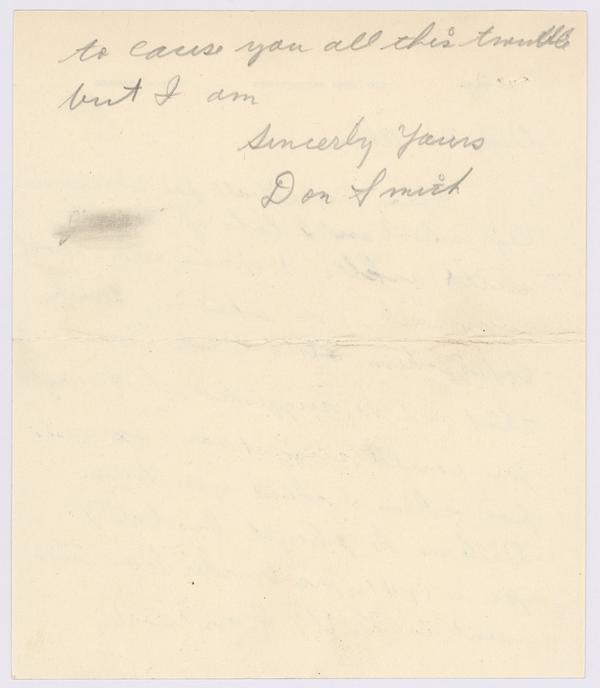 to cause you all this trouble
but I am
Sincerly Yours
Don Smith